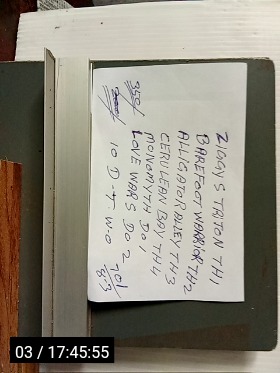 ZIGGYS TRITON TH1
BAREFOOT WARRIOR TH2
ALLIGATOR ALLEY TH3
CERULEAN BAY TH4
MONOMYTH DO1
LOVE WARS DO2
10 D-T W-O
350
701
873
03 / 17:45:55